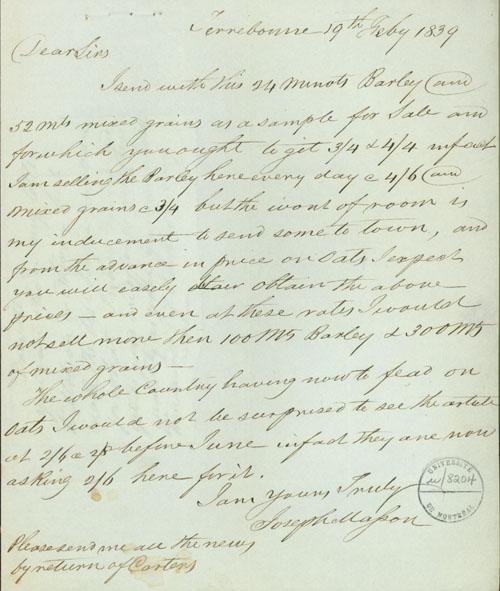 Terrebonne 19th Feby 1839
Dear Sirs
I send with this 24 Minots Barley and
52 Mts mixed grains as a sample for Sale and
for which you ought to get 3/4 & 4/4 infact
I am selling the Barley here every day @ 4/6 and
Mixed grains @ 3/4 but the want of room is
my inducement to send some to town, and
from the advance in price on Oats I expect
you will easely obtain the above
prices – and even at these rates I would
not sell more then 100 Mts Barley & 300 Mts
of mixed grains –
The whole Country having now to fead on
Oats I would not be surprised to see the article
at 2/6 a before June infact they are now
asking 2/6 here for it.
I am Yours Truly
Joseph Masson
Please send me all the news
by return of Carters
UNIVERSITÉ
u/8204
DE MONTRÉAL